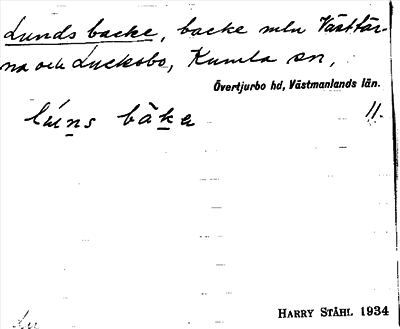 Lunds backe, backe mln Västtär-
na och Lucksbo, Kumla sn,
Övertjurbo hd, Västmanlands län.
lúns bàkа 11.
HARRY STÅHL 1934
Lu